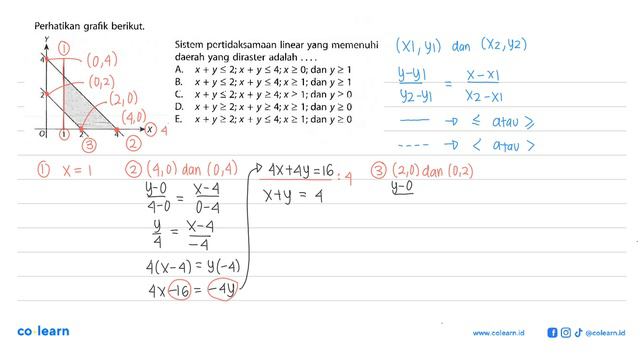 Perhatikan grafik berikut.
Y
4
2
0
1
2
4
X
①
(0,4)
(0,2)
(2,0)
(4,0)
4
③
②
Sistem pertidaksamaan linear yang memenuhi
daerah yang diraster adalah ....
A. x + y ≤ 2; x + y ≤ 4; x ≥ 0; dan y ≥ 1
B. x + y ≤ 2; x + y ≤ 4; x ≥ 1; dan y ≥ 1
C. x + y ≤ 2; x + y ≥ 4; x > 1; dan y > 0
D. x + y ≥ 2; x + y ≥ 4; x ≥ 1; dan y ≥ 0
E. x + y ≥ 2; x + y ≤ 4; x ≥ 1; dan y ≥ 0
(x1, y1) dan (x2, y2)
y-y1 / y2-y1 = x-x1 / x2-x1
—— → ≤ atau ≥
---- → < atau >
① x = 1
② (4,0) dan (0,4)
y-0 / 4-0 = x-4 / 0-4
y / 4 = x-4 / -4
4(x-4) = y(-4)
4x -16 = -4y
4x+4y = 16 : 4
x+y = 4
③ (2,0) dan (0,2)
y-0
co·learn
www.colearn.id
@colearn.id